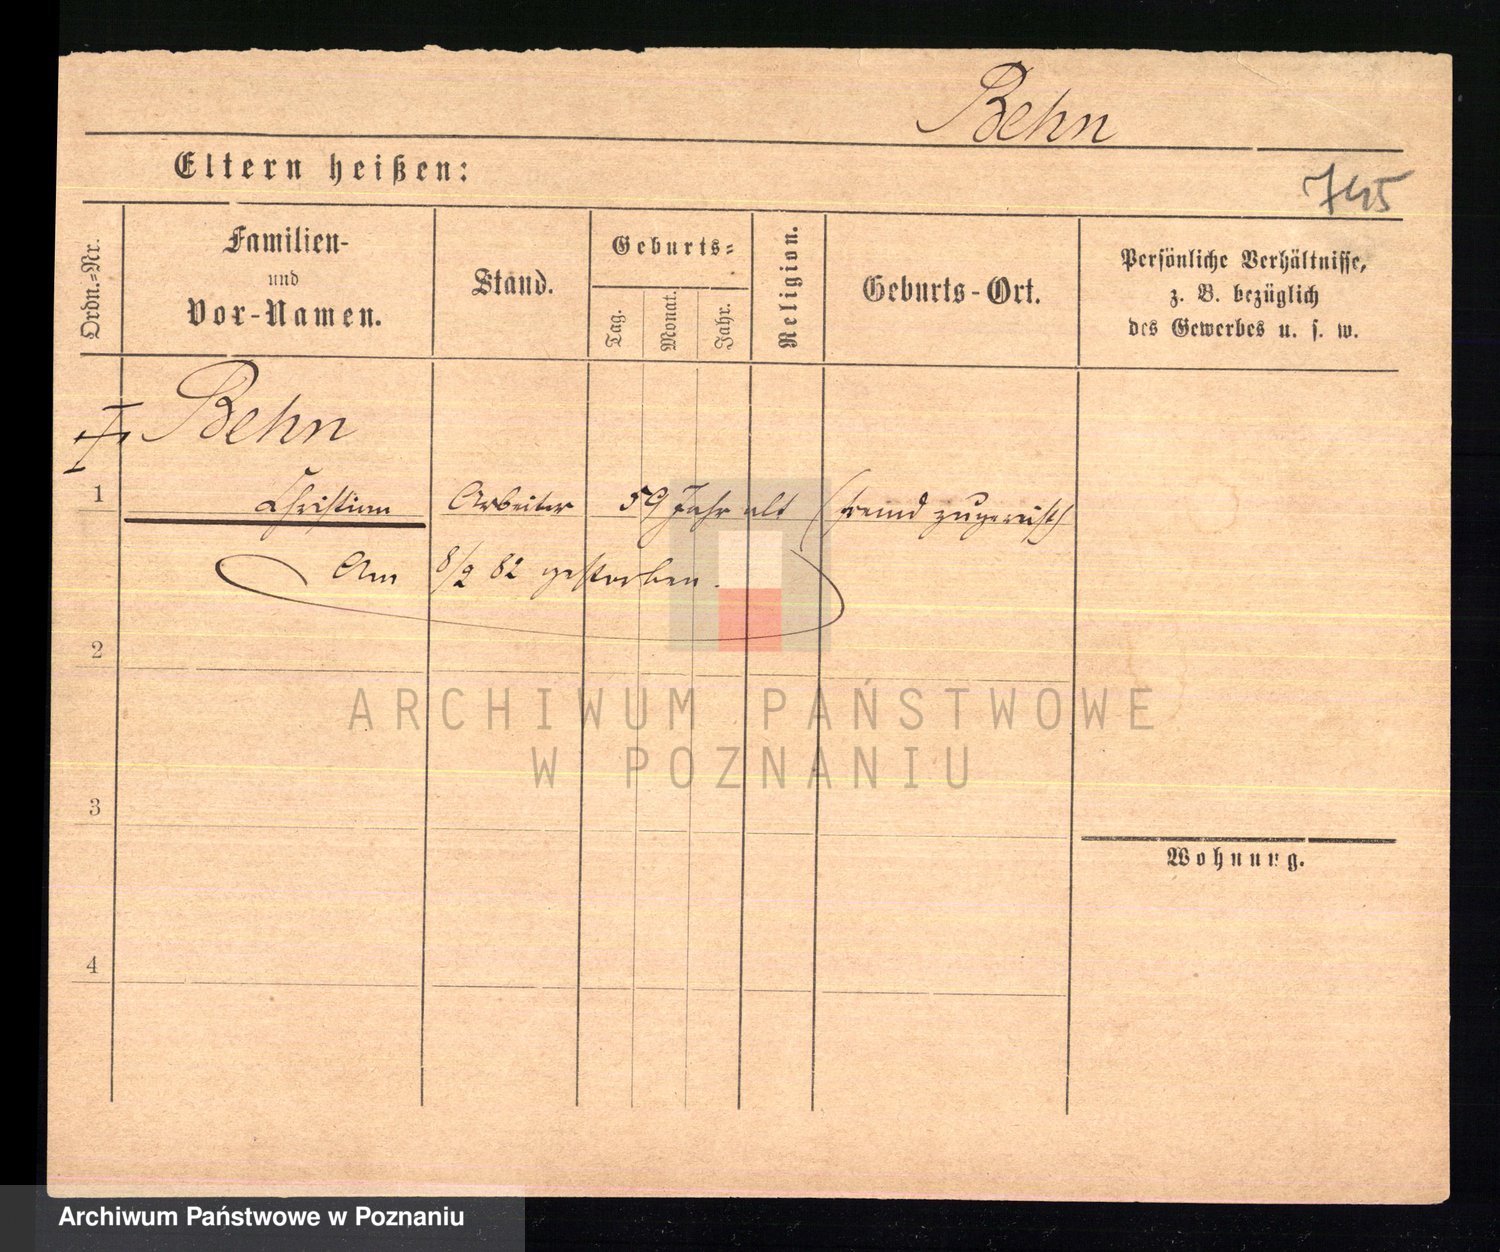 Behn
Eltern heißen:
745
Ordn.-Nr.
Familien-
und
Vor-Namen.
Stand.
Geburts-
Tag.
Monat.
Jahr.
Religion.
Geburts-Ort.
Persönliche Verhältnisse,
z. B. bezüglich
des Gewerbes u. s. w.
Behn
1 Christian Arbeiter 59 Jahr alt (fremd zugereist)
Am 8/2 82 gestorben.
2
ARCHIWUM PAŃSTWOWE
W POZNANIU
3
Wohnung.
4
Archiwum Państwowe w Poznaniu